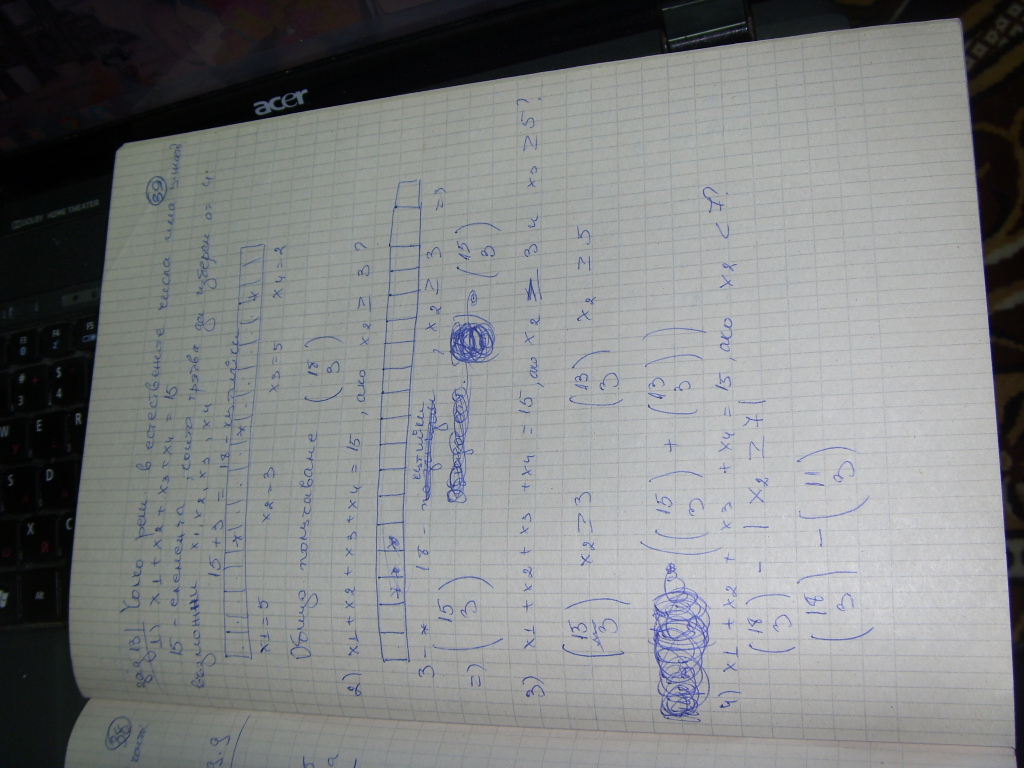 39
зад 13) Колко реш. в естествени числа има
1) x1 + x2 + x3 + x4 = 15
15 - елемента, които трябва да изберем от 4
възможни x1, x2, x3, x4
15 + 3 = 18 - кутийки
x1 = 5 x2 = 3 x3 = 5 x4 = 2
Общо получаваме (18 3)
2) x1 + x2 + x3 + x4 = 15, ако x2 ≥ 3?
3 - * 18 - кутийки x2 ≥ 3 =>
=> (15 3) (15 3)
3) x1 + x2 + x3 + x4 = 15, ако x2 ≥ 3 и x3 ≥ 5?
(15 3) x2 ≥ 3 (13 3) x2 ≥ 5
((15 3) + (13 3))
4) x1 + x2 + x3 + x4 = 15, ако x2 < 7?
(18 3) - | x2 ≥ 7 |
(18 3) - (11 3)
38
acer
DOLBY HOME THEATER